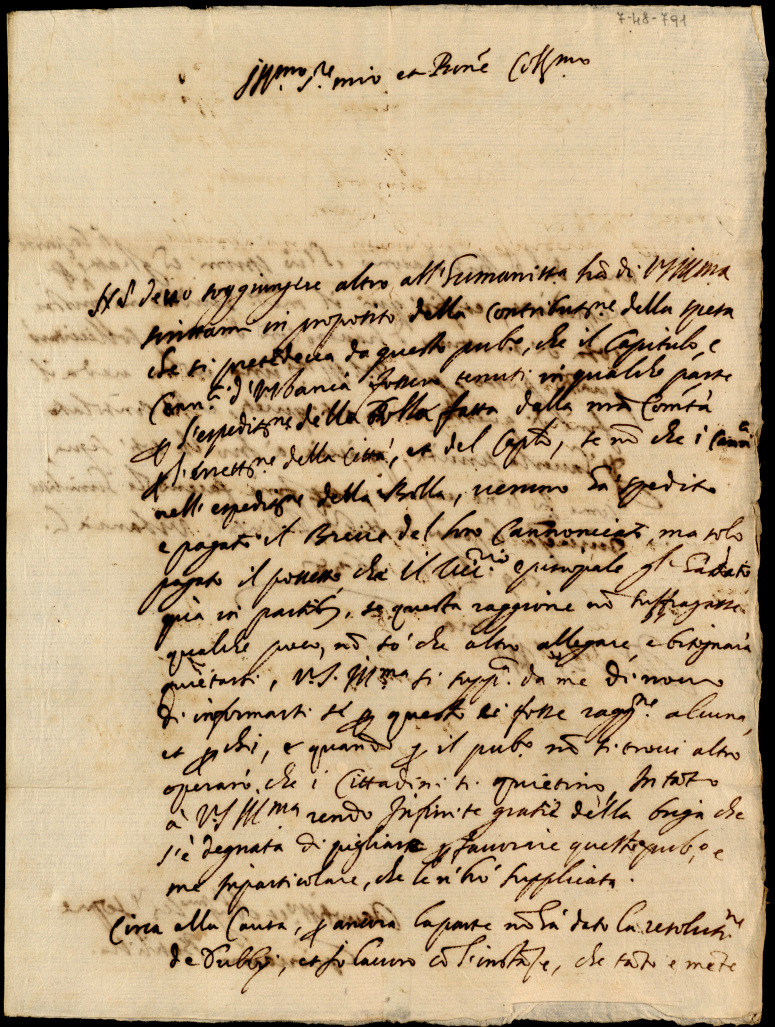 7-48-791
Ill.mo S.re mio et Pron̄e Coll.mo
devo soggiungere altro all' Humanitta di VS Ill.ma
in proposito della contributne della spesa
che si pretedeva da questo pub.o, che il Capitulo, e
Cann.ci d'Urbania fossero tenuti in qualche parte
l'espeditne della Bolla fatta dalla Comtà
l'erettne della Città, et del Caplo, se nō che i Can.ci
nell' espeditne della Bolla, veruno ha spedito
e pagato il Breve del loro Cannonicato, ma solo
pagato il possesso, che il Vic.rio episcopale gl' ha dato
quà in partib., se questa raggione nō suffragasse
qualche poco, nō sò che altro allegare, e bisognarà
quietarsi, V.S. Ill.ma si supp.a da me di novo
di informarsi se p questo ci fosse ragg.ne alcuna,
et p chi, e quando p il pub.o nō si trovi altro
operarò che i Cittadini si quietino, In tāto
à V.S Ill.ma rendo Infinite gratie della briga che
s'è degnata di pigliare p favorire questo pub.o, e
me inparticolare, che le n'hò supplicata.
Circa alla Causa, p ancora la parte nō hà dato la resolut.ne
de Dubbij, et io lavoro cō l'instāze, che tāto e mēte